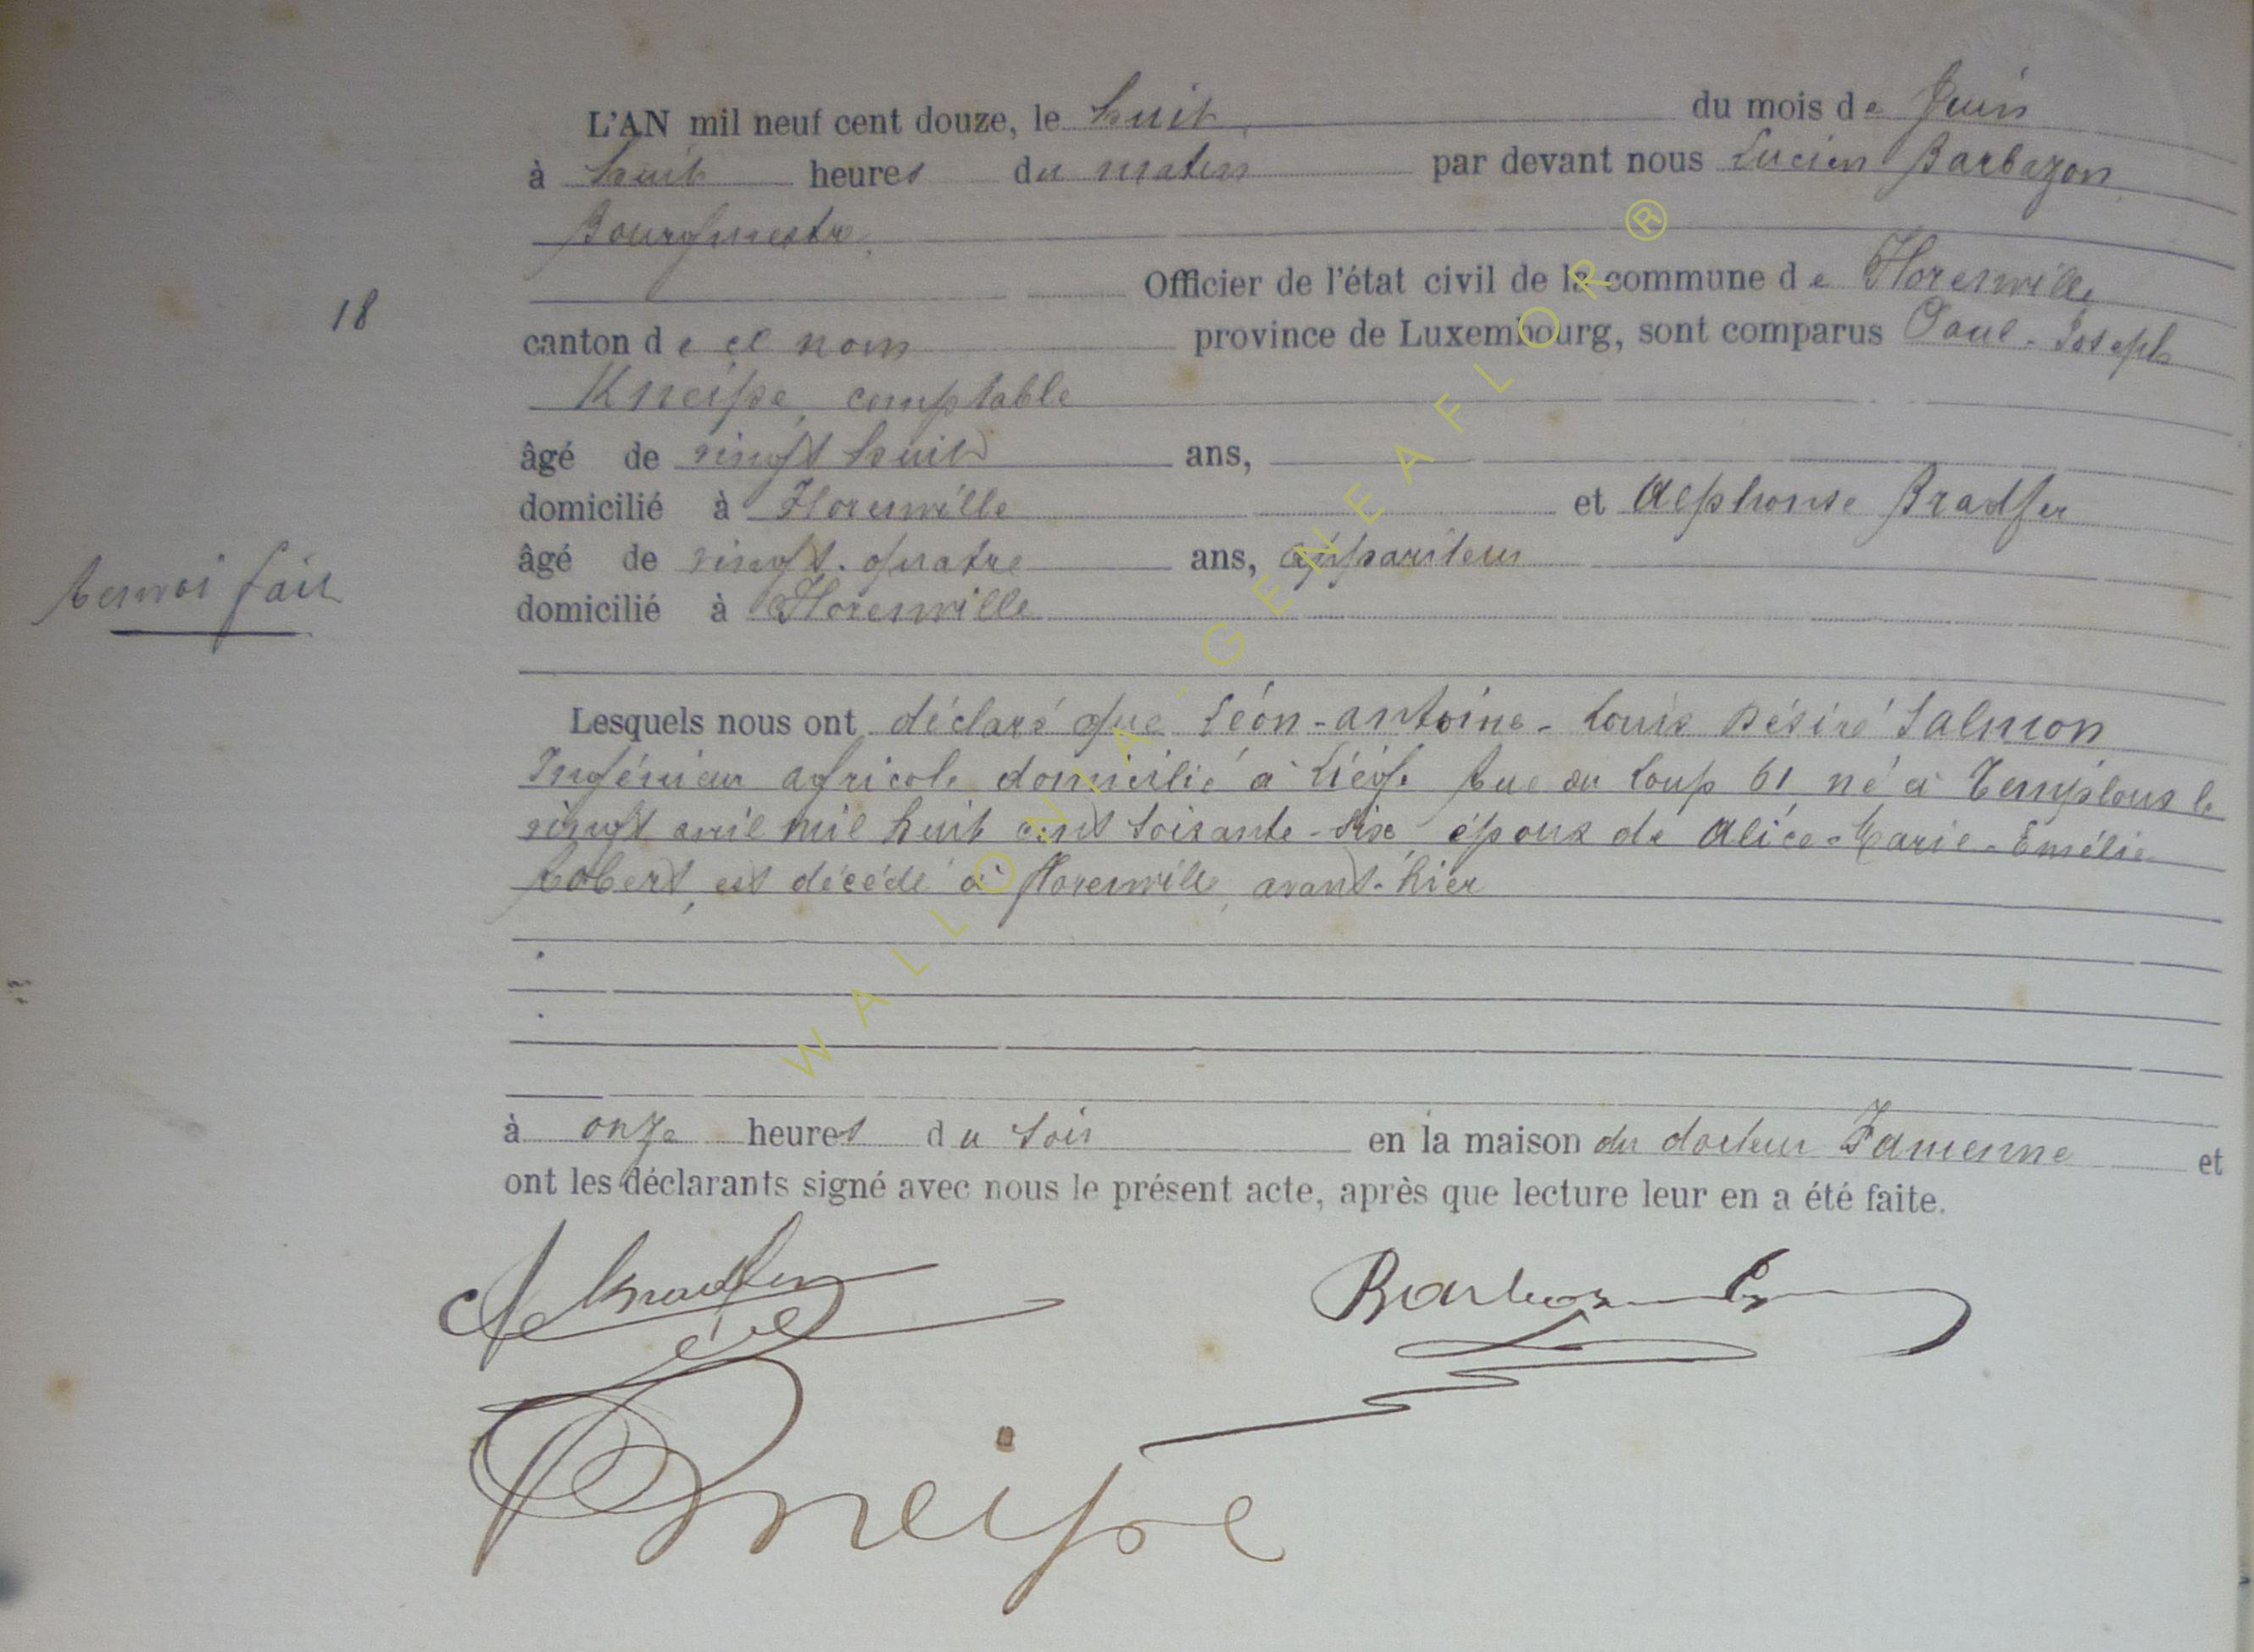 L'AN mil neuf cent douze, le huit du mois de Juin
à huit heures du matin par devant nous Lucien Barbazon
Bourgmestre
Officier de l'état civil de la commune de Florenville
18
canton de ce nom province de Luxembourg, sont comparus Paul-Joseph
Kneipe, comptable
âgé de vingt huit ans,
domicilié à Florenville et Alphonse Bradfer
âgé de vingt-quatre ans, appariteur
Renvoi fait
domicilié à Florenville
Lesquels nous ont déclaré que Léon-Antoine-Louis Désiré Salmon
Ingénieur agricole domicilié à Liége Rue du Loup 61, né à Temploux le
vingt avril mil huit cent soixante-six, époux de Alice-Marie-Emélie
Robert, est décédé à Florenville, avant-hier
à onze heures du soir en la maison du docteur Famenne et
ont les déclarants signé avec nous le présent acte, après que lecture leur en a été faite.
A Bradfer
Kneipe
WALLONIA-GENEAFLOR®